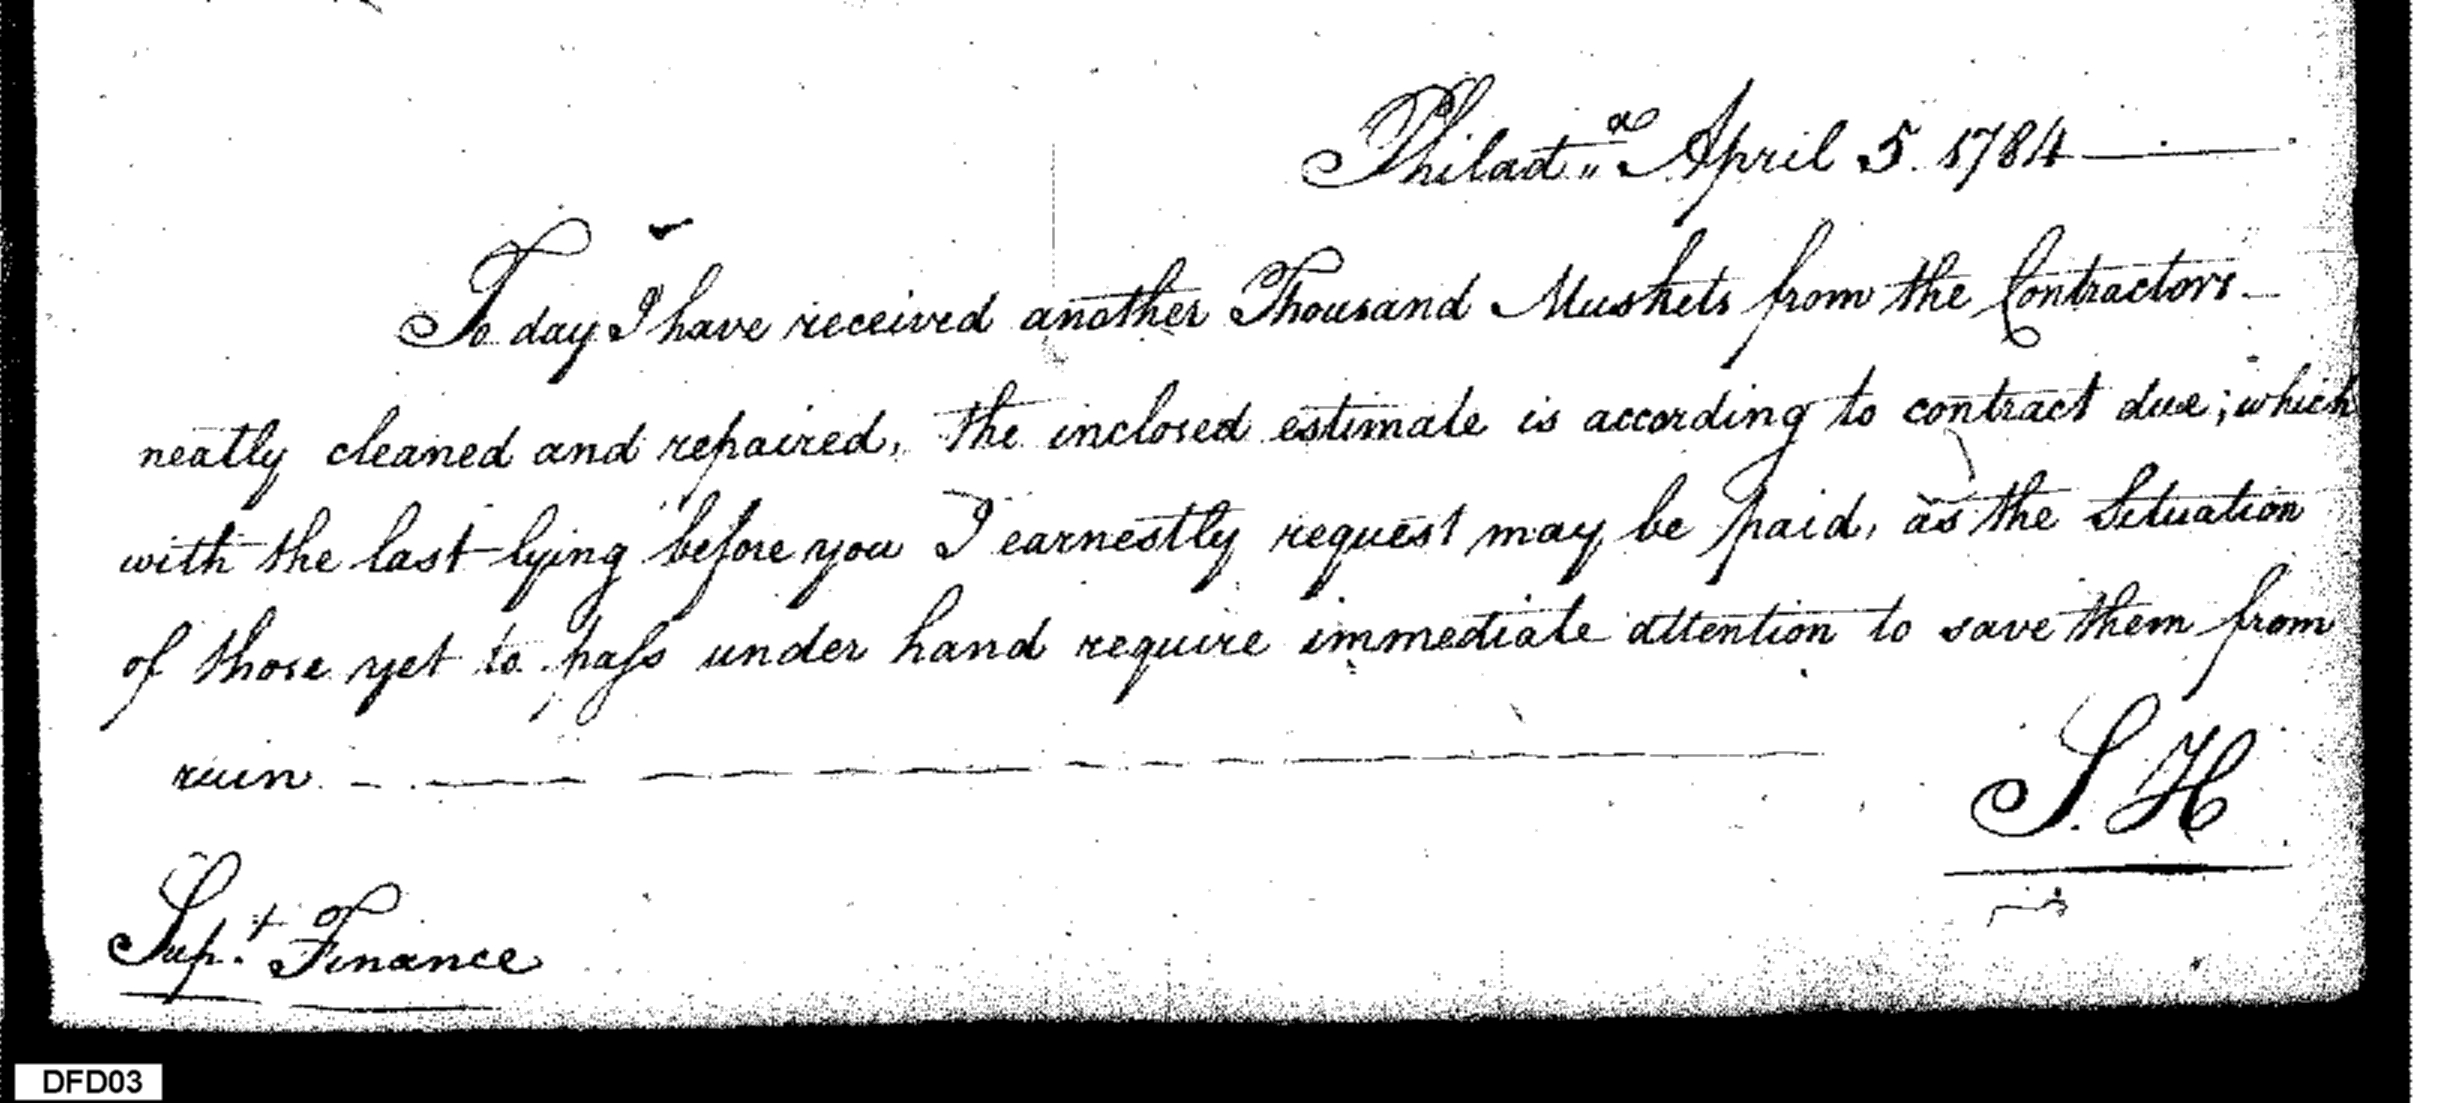 Philad.ª April 5. 1784
To day I have received another Thousand Muskets from the Contractors
neatly cleaned and repaired, the inclosed estimate is according to contract due; which
with the last lying before you I earnestly request may be paid, as the Situation
of those yet to pass under hand require immediate attention to save them from
ruin.
S. H
Sup.t Finance
DFD03